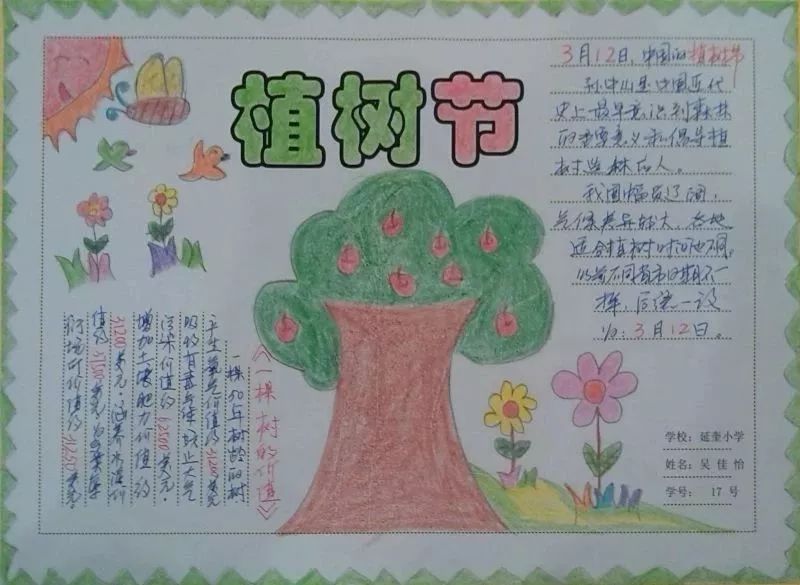 植树节
3月12日，中国的植树节
孙中山是中国近代
史上最早意识到森林
的重要意义和倡导植
树造林的人。
我国幅员辽阔，
气候差异较大，各地
适合植树时间也不同，
不同省市日期不一
样，后统一设
为：3月12日。
《一棵树的价值》
一棵50年树龄的树
产生氧气价值约31200美元
吸收有毒气体、防止大气
污染价值约62500美元。
增加土壤肥力价值约
31200美元，涵养水源
价值约37500美元，为鸟类
价值约31250美元。
学校：延奎小学
姓名：吴佳怡
学号： 17号